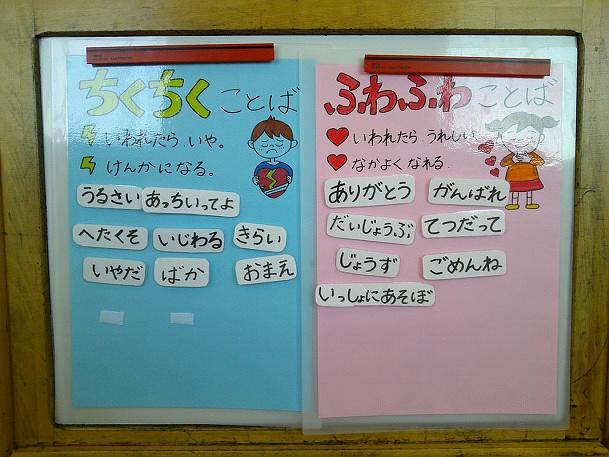 ちくちくことば
いわれたら、いや。
けんかになる。
うるさい
あっちいってよ
へたくそ
いじわる
きらい
いやだ
ばか
おまえ
ふわふわことば
いわれたら、うれしい
なかよくなれる.
ありがとう
がんばれ
だいじょうぶ
てつだって
じょうず
ごめんね
いっしょにあそぼ